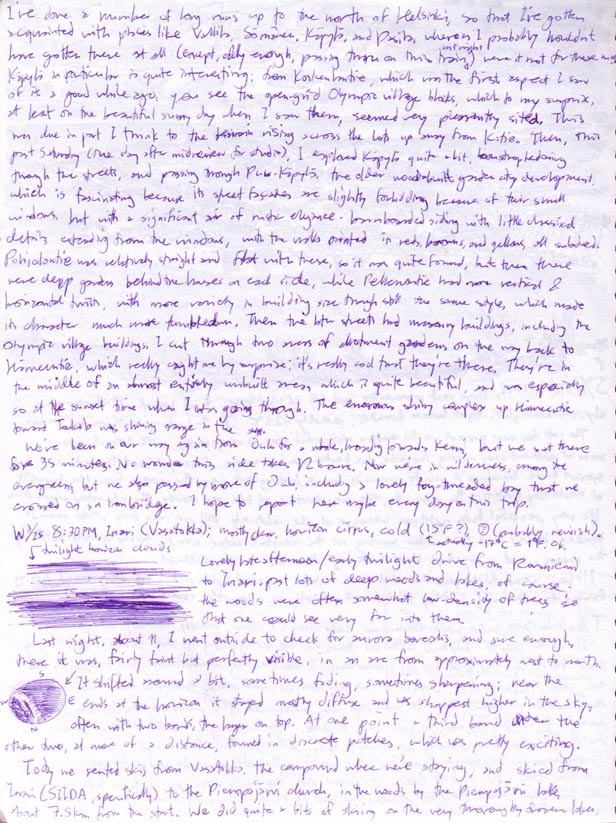 I've done a number of long runs up to the north of Helsinki, so that I've gotten
acquainted with places like Vallila, Sörnäinen, Käpylä, and Pasila, whereas I probably wouldn't
have gotten there at all (except, oddly enough, passing through on this train) were it not for these
Käpylä in particular is quite interesting: from Koskelantie, which was the first aspect I saw
of it a good while ago, you see the open-grid Olympic village blocks, which to my surprise,
at least on the beautiful sunny day when I saw them, seemed very pleasantly sited. This
was due in part I think to the terrain rising across the lots up away from K-tie. Then, this
past Saturday (the day after midreview for studio), I explored Käpylä quite a bit,
through the streets, and passing through Puu-Käpylä, the older wood-built garden city development,
which is fascinating because its street façades are slightly forbidding because of their small
windows, but with a significant air of rustic elegance - board siding with little classical
details extending from the windows, with the walls painted in reds, browns, and yellows, all subdued.
Pohjolantie was relatively straight and flat with these, so it was quite formal, but then there
were deep gardens behind the houses on each side, while Pellervontie had more vertical &
horizontal twists, with more variety in building size though still the same style, which made
its character much more tumbledown. Then the later streets had masonry buildings, including the
Olympic village buildings. I cut through two areas of allotment gardens on the way back to
Hämeentie, which really caught me by surprise; it's really cool that they're there. They're in
the middle of an almost entirely unbuilt area, which is quite beautiful, and was especially
so at the sunset time when I was going through. The enormous shiny complex up Hämeentie
toward was shining orange in the sun.
We've been on our way again from Oulu for a while, heading towards Kemi, but we sat there
for 35 minutes. No wonder this ride takes 12 hours. Now we're in wilderness, among the
evergreens, but we also passed by more of Oulu, including a lovely fog-threaded bay that we
crossed on an iron bridge. I hope to report here maybe every day on this trip.
W 3/25 8:30 PM, Inari (Vasatokka); mostly clear, horizon cirrus, cold (15°F?) (probably newish).
actually -17°C = 1°F, ok.
twilight horizon clouds
Lovely late afternoon/early twilight drive from Rovaniemi
to Inari, past lots of deep woods and lakes, of course.
The woods were often somewhat low-density of trees so
that one could see very far into them.
Last night, about 11, I went outside to check for aurora borealis, and sure enough,
there it was, fairly faint but perfectly visible, in an arc from approximately west to north.
It shifted around a bit, sometimes fading, sometimes sharpening; near the
ends at the horizon it stayed mostly diffuse and was sharpest higher in the sky,
often with two bands, the larger on top. At one point a third band under the
other two, at more of a distance, formed in discrete patches, which was pretty exciting.
S
W
E
N
Today we rented skis from Vasatokka, the compound where we're staying, and skied from
Inari (SIIDA, specifically) to the Pielpajärvi church, in the woods by the Pielpajärvi lake,
about 7.5km from the start. We did quite a bit of skiing on the very thoroughly frozen lakes,